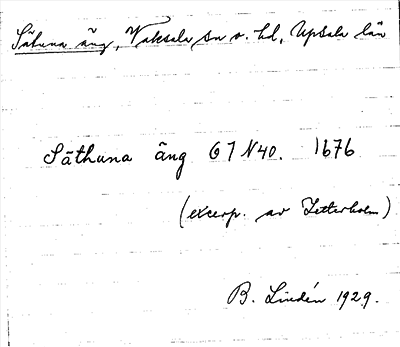 Såhuna äng, Vaksala sn o. hd, Upsala län
Såthuna äng G 7 N40. 1676
(excerp. av Zetterholm)
B. Lindén 1929.